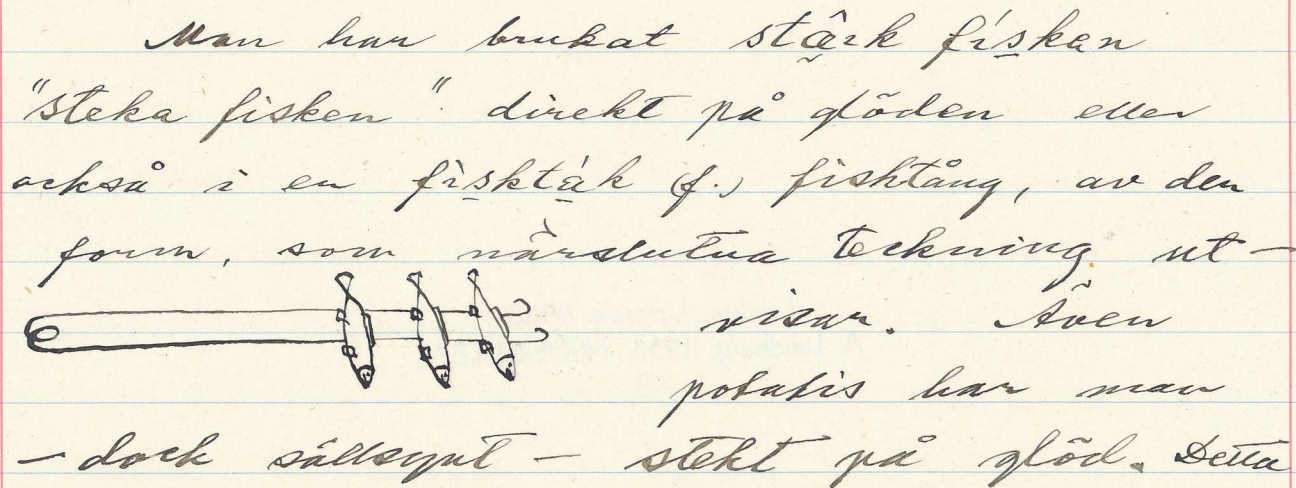 Man har brukat stârk fìskan
"steka fisken" direkt på glöden eller
också i en fìsktàk (f.) fisktång, av den
form, som närslutna teckning ut-
visar. Även
potatis har man
- dock sällsynt - stekt på glöd. Detta